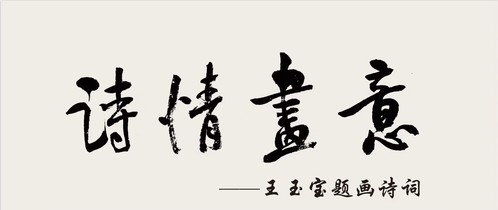 诗情畫意
——王玉宝题画诗词